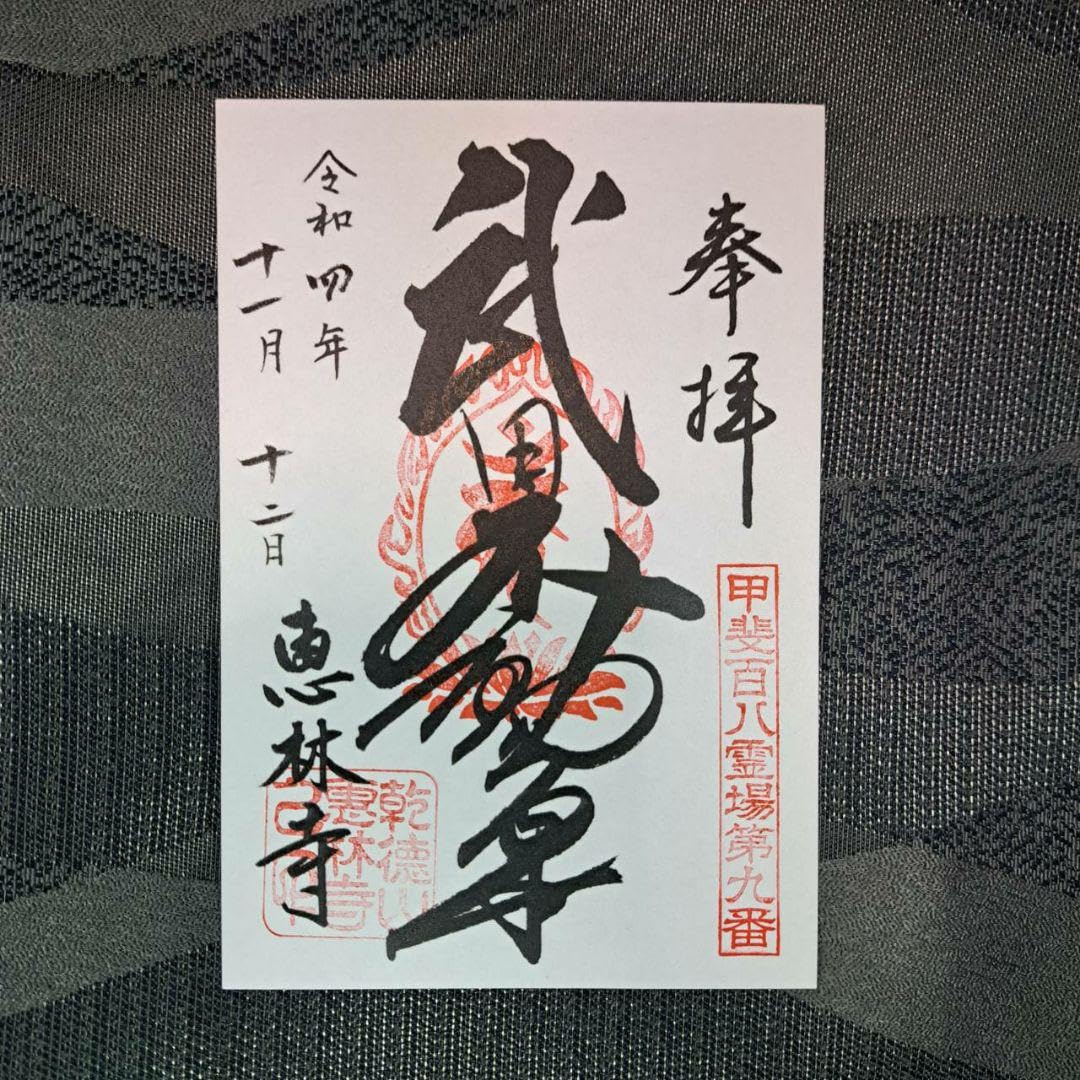 奉拝
甲斐百八霊場第九番
武田不動尊
令和四年
十一月 十二日
恵林寺
乾徳山
恵林寺